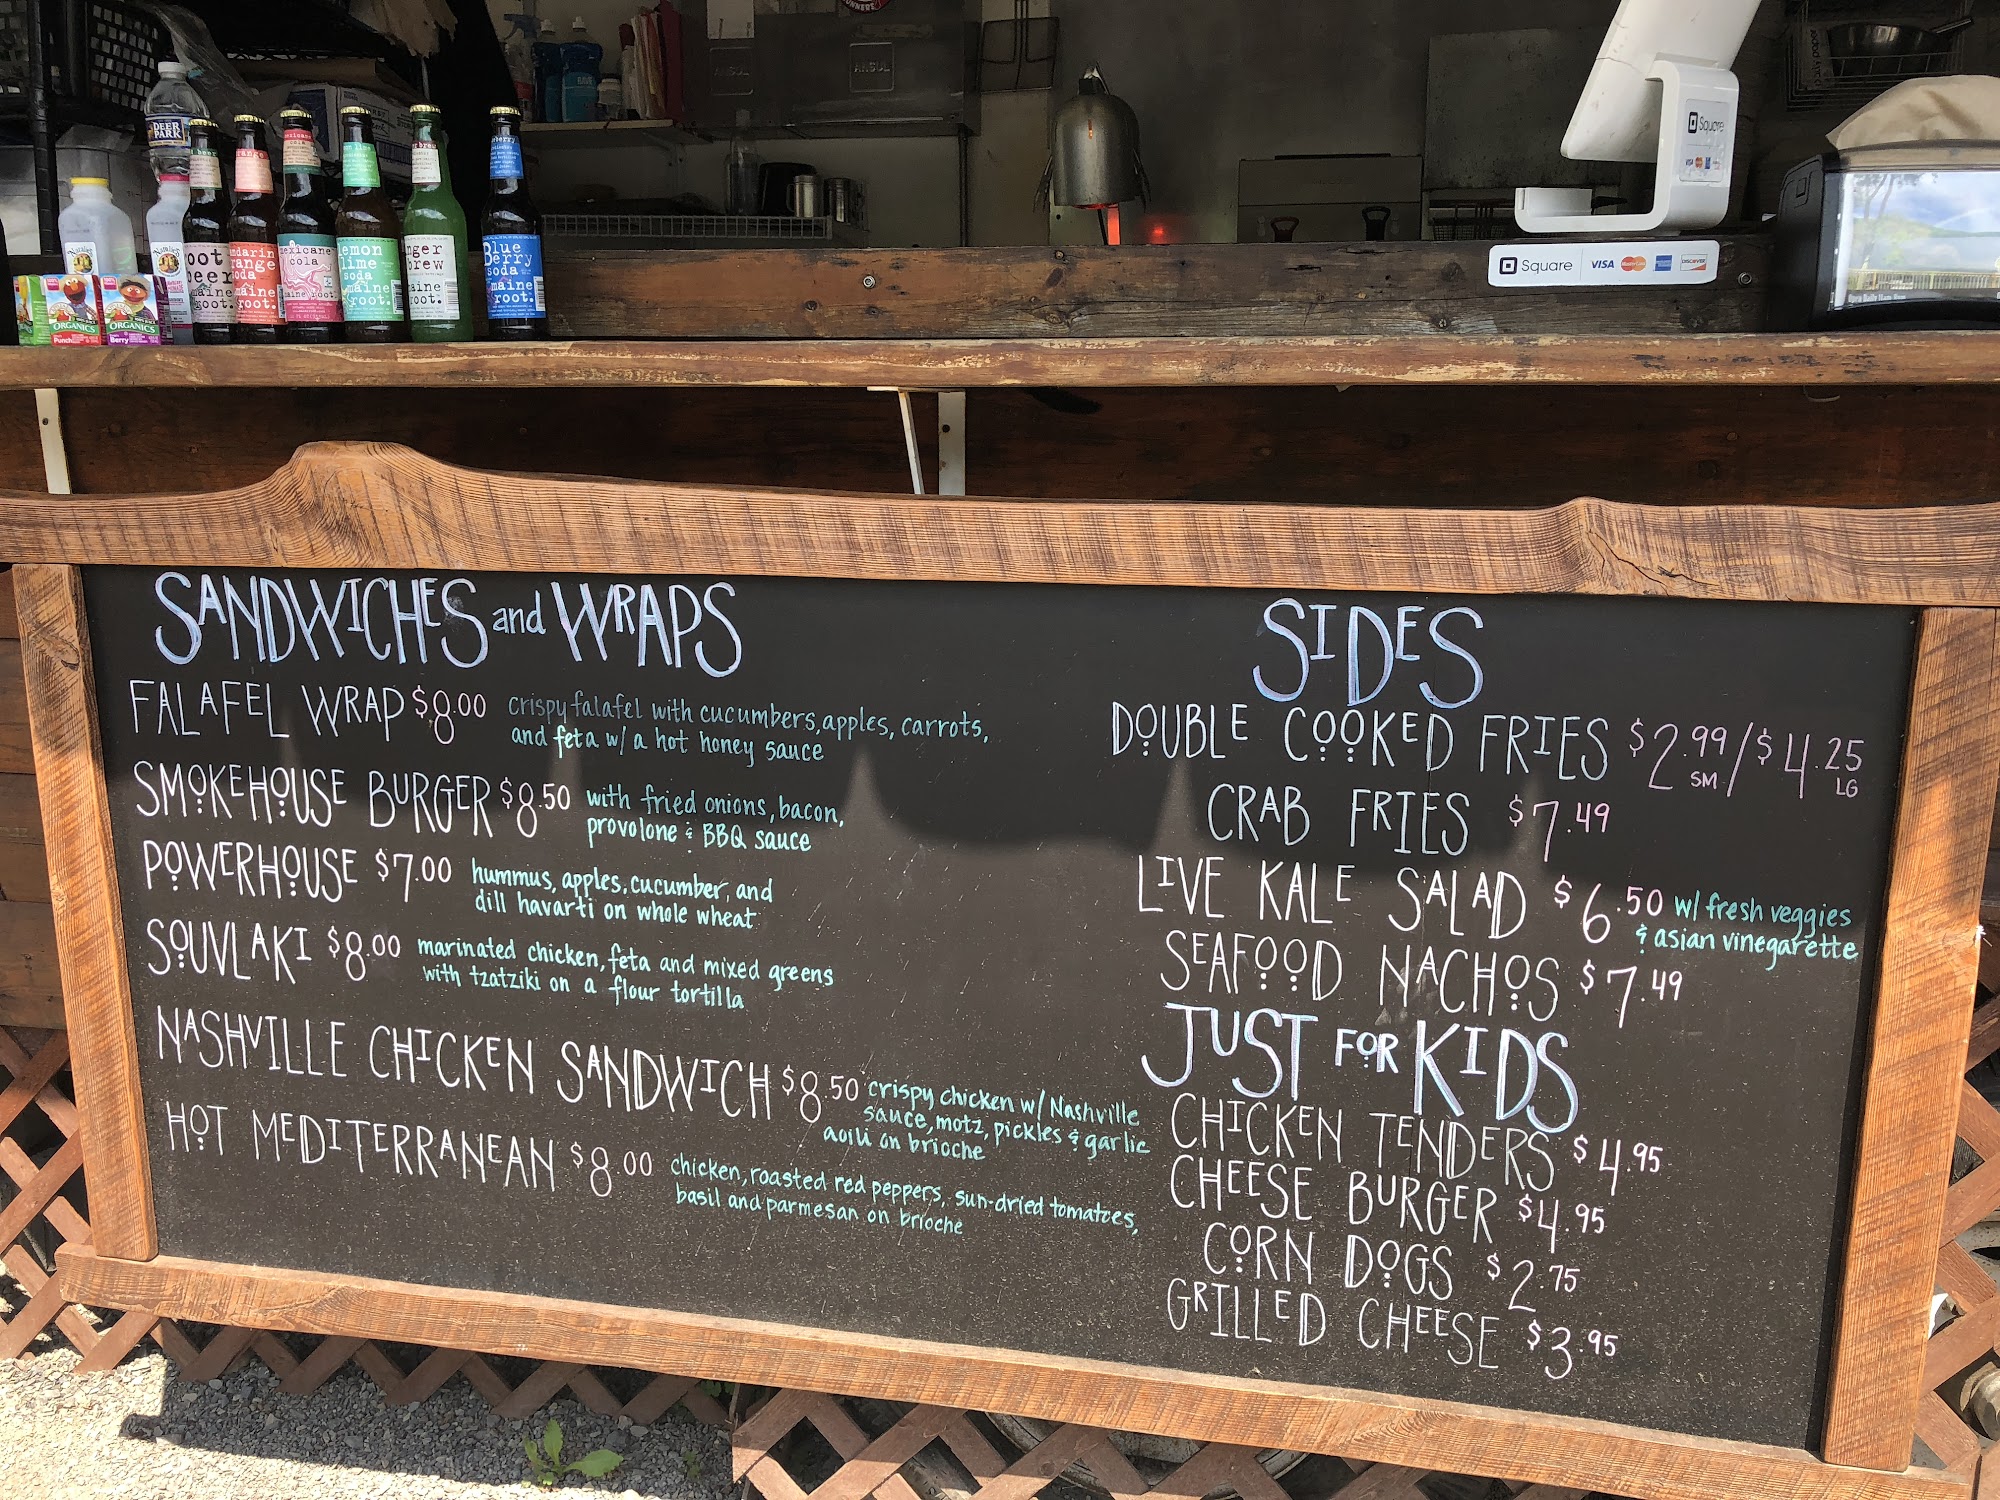 ANSUL
ANSUL
DEER
PARK
Square
Square VISA MasterCard DISCOVER
mexicane
cola
maine root.
lemon
lime
soda
maine
root.
brew
maine
root.
Blue
Berry
soda
maine
root.
ORGANICS
Punch
ORGANICS
Berry
SANDWICHES and WRAPS
FALAFEL WRAP $8.00 crispy falafel with cucumbers, apples, carrots,
and feta w/ a hot honey sauce
SMOKEHOUSE BURGER $8.50 with fried onions, bacon,
provolone & BBQ sauce
POWERHOUSE $7.00 hummus, apples, cucumber, and
dill havarti on whole wheat
SOUVLAKI $8.00 marinated chicken, feta and mixed greens
with tzatziki on a flour tortilla
NASHVILLE CHICKEN SANDWICH $8.50 crispy chicken w/ Nashville
sauce, motz, pickles & garlic
aoili on brioche
HOT MEDITERRANEAN $8.00 chicken, roasted red peppers, sun-dried tomatoes,
basil and parmesan on brioche
SIDES
DOUBLE COOKED FRIES $2.99/$4.25
SM LG
CRAB FRIES $7.49
LIVE KALE SALAD $6.50 w/ fresh veggies
& asian vinegarette
SEAFOOD NACHOS $7.49
JUST FOR KIDS
CHICKEN TENDERS $4.95
CHEESE BURGER $4.95
CORN DOGS $2.75
GRILLED CHEESE $3.95